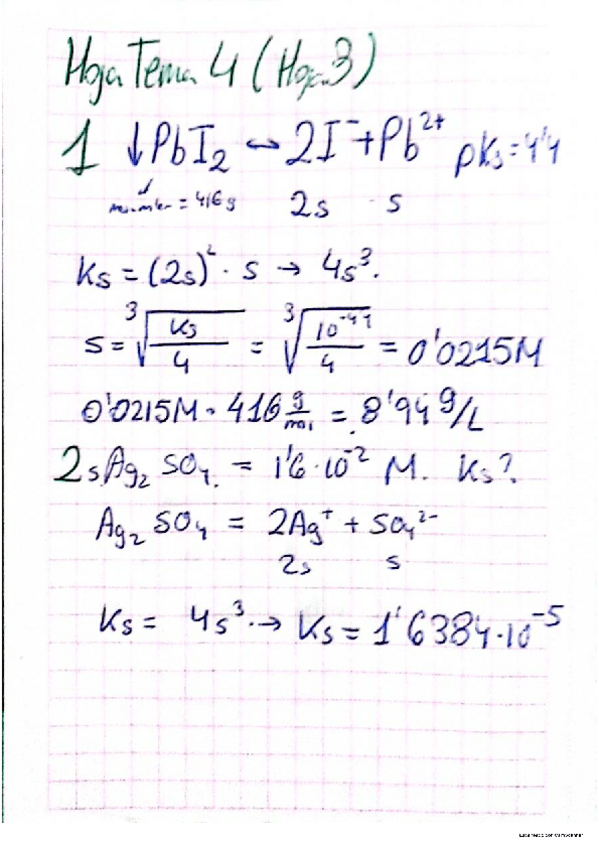 Hoja Tema 4 (Hoja 3)
1 ↓PbI₂ ↔ 2I⁻ + Pb²⁺ pKs = 4'4
= 416 g 2s s
Ks = (2s)² · s → 4s³.
s = ∛(Ks/4) = ∛(10^-4'4/4) = 0'0215M
0'0215M · 416 g/mol = 8'94 g/L
2 s Ag₂SO₄ = 1'6·10⁻² M. Ks?
Ag₂SO₄ = 2Ag⁺ + SO₄²⁻
2s s
Ks = 4s³ → Ks = 1'6384·10⁻⁵